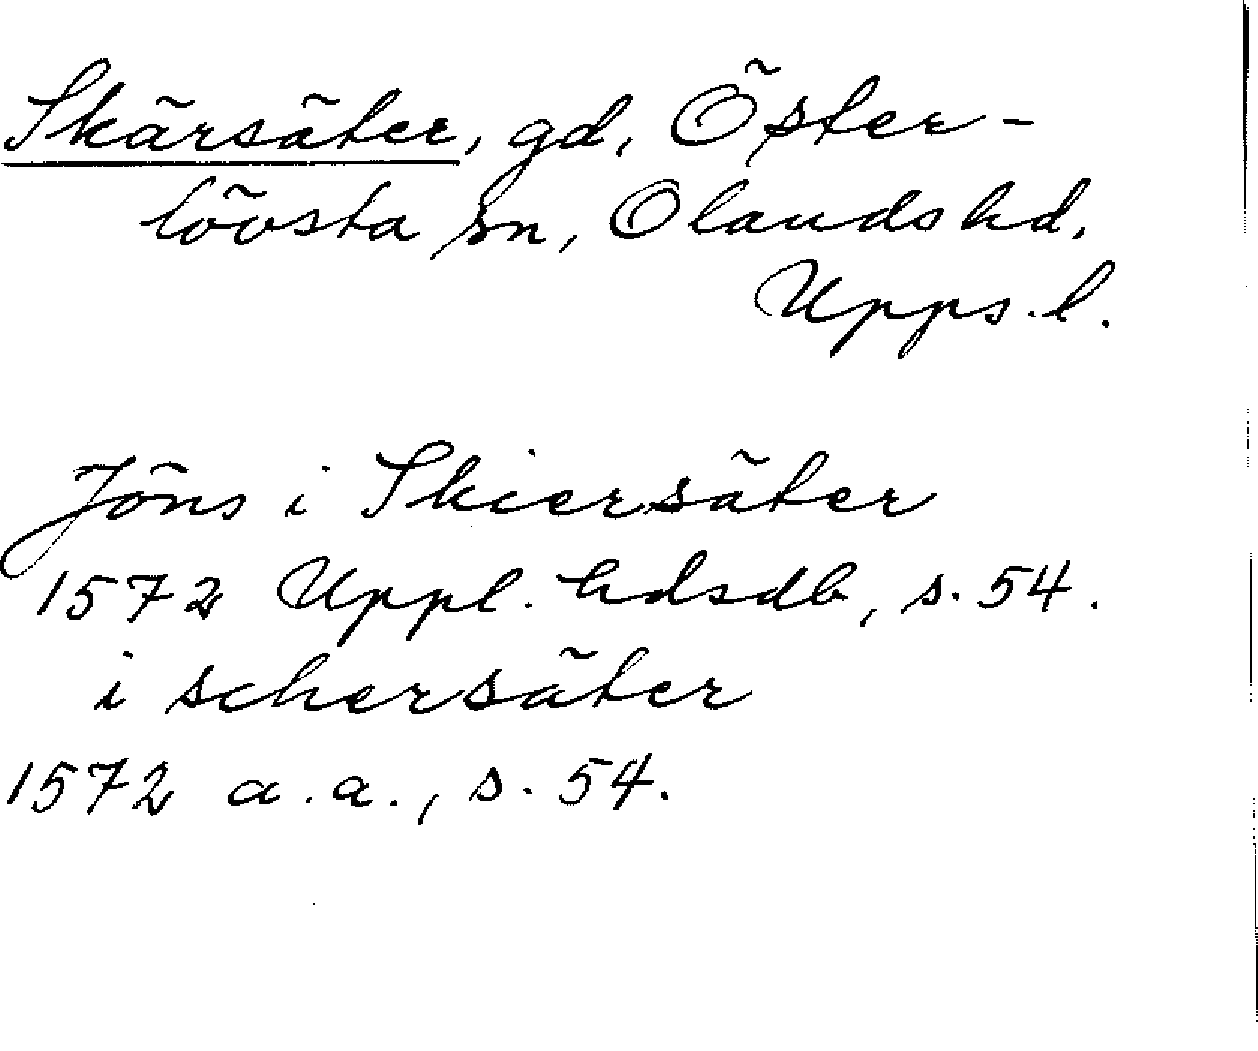 Skärsäter, gd, Öster-
lövsta sn, Olands hd,
Upps. l.
Jöns i Skiersäter
1572 Uppl. hdsdb, s. 54.
i schersäter
1572 a. a., s. 54.